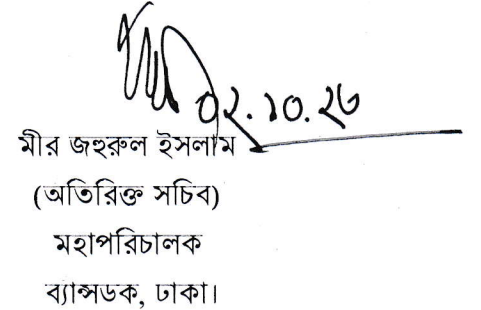 ০২.১০.২৩
মীর জহুরুল ইসলাম
(অতিরিক্ত সচিব)
মহাপরিচালক
ব্যান্সডক, ঢাকা।